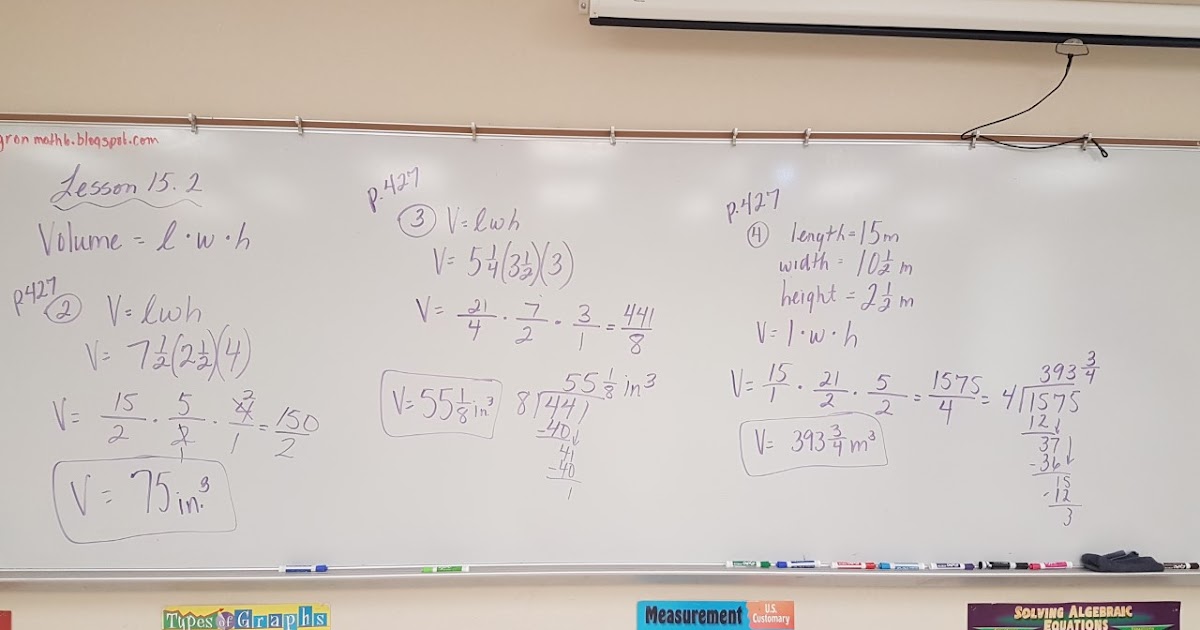 gron math6.blogspot.com
Lesson 15.2
Volume = l · w · h
p.427
② V = lwh
V = 7 1/2 (2 1/2)(4)
V = 15/2 · 5/2 · 4/1 = 150/2
2
1
V = 75 in.³
p.427
③ V = lwh
V = 5 1/4 (3 1/2)(3)
V = 21/4 · 7/2 · 3/1 = 441/8
V = 55 1/8 in³
55 1/8 in³
8)441
-40
41
-40
1
p.427
④ length = 15 m
width = 10 1/2 m
height = 2 1/2 m
V = l · w · h
V = 15/1 · 21/2 · 5/2 = 1575/4 =
V = 393 3/4 m³
393 3/4
4)1575
12
37
-36
15
-12
3
Types of Graphs
Measurement
U.S.
Customary
SOLVING ALGEBRAIC
EQUATIONS